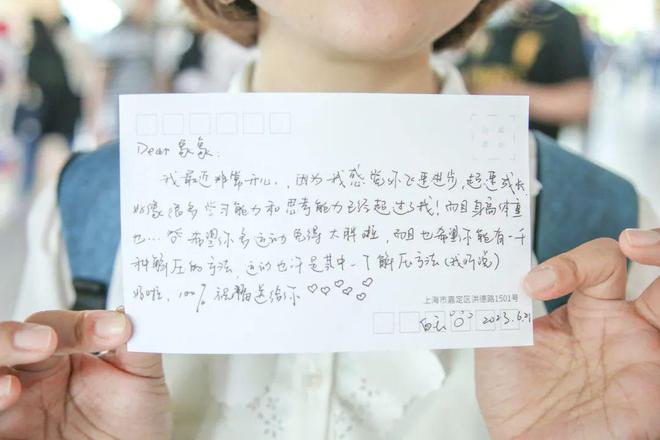 Dear 象象:
我最近非常开心，因为我感觉你飞速进步，超速成长
好像很多学习能力和思考能力已经超过了我！而且身高体重
也… 希望你多运动免得太胖啦，而且也希望你能有一千
种解压的方法，运动也许是其中一个解压方法(我听说)
好啦，100%祝福送给你♡♡♡♡♡
上海市嘉定区洪德路1501号
白云 2023.6.21